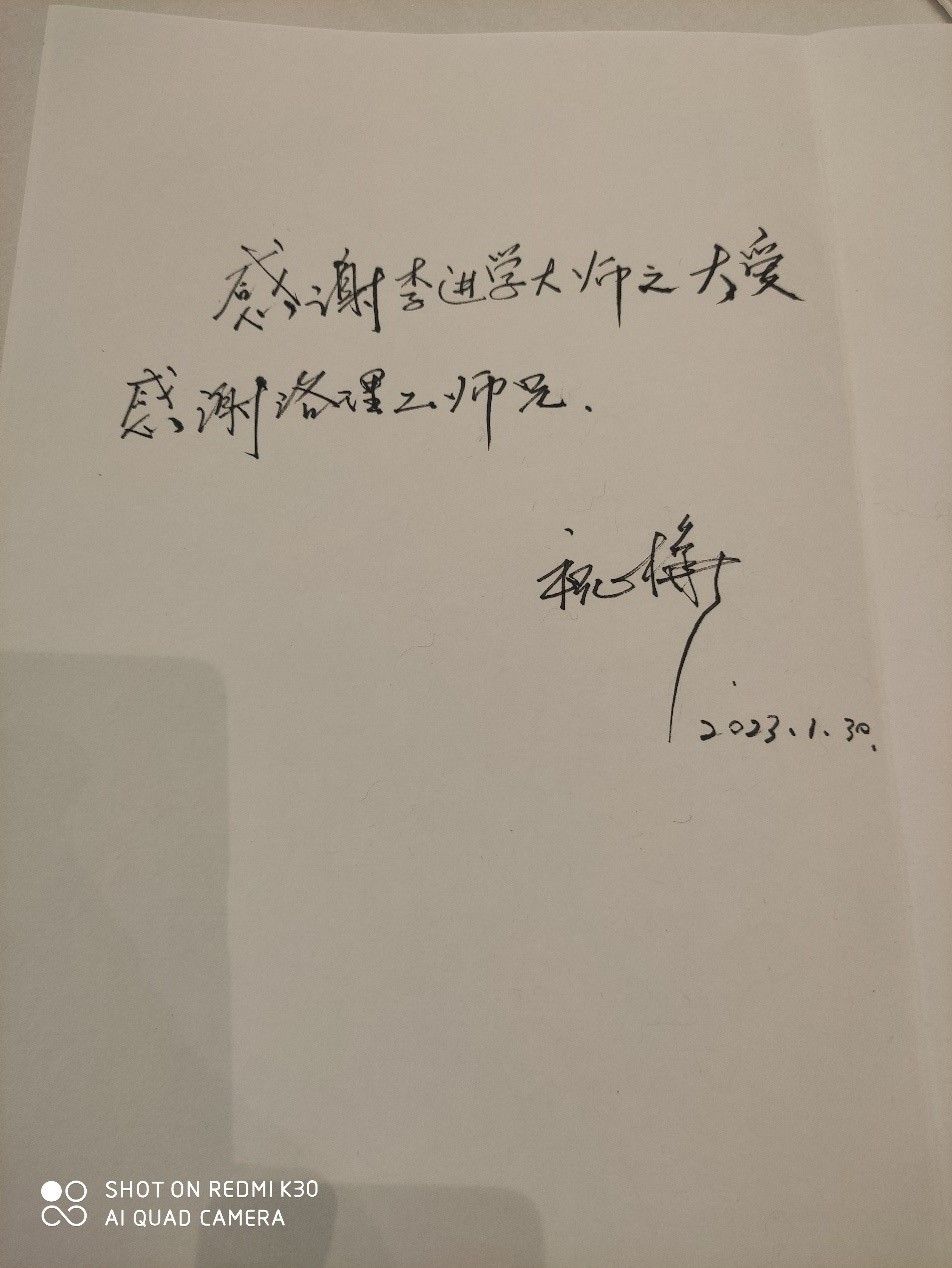 感谢李进学大师之大爱
感谢洛理工师兄.
2023.1.30.
SHOT ON REDMI K30
AI QUAD CAMERA